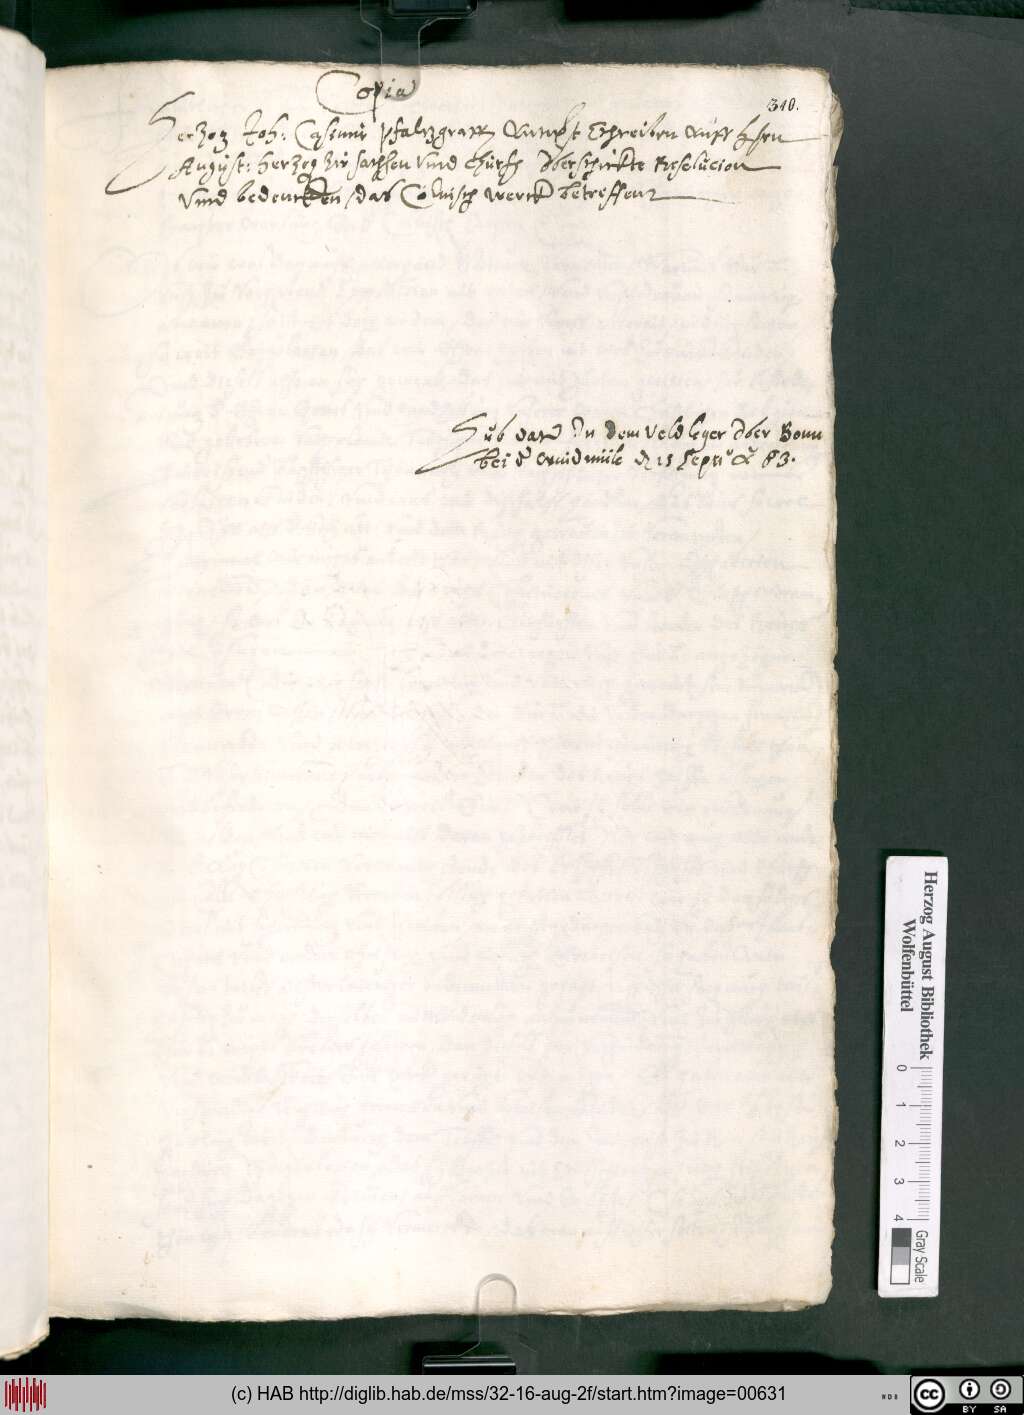 Copia
310.
Herzog Joh: Casimir Pfaltzgraff Antwort Schreiben auff Hern
August: Herzog zu Sachsen vnd Churf: überschickte Resolucion
vnd bedencken, das Cölnisch werck betreffent
Sub dato In dem veld leger Ober Bonn
bei d 15 Sept: &c 83.
Herzog August Bibliothek
Wolfenbüttel
0 1 2 3 4
Gray Scale
(c) HAB http://diglib.hab.de/mss/32-16-aug-2f/start.htm?image=00631
WDB
cc BY SA